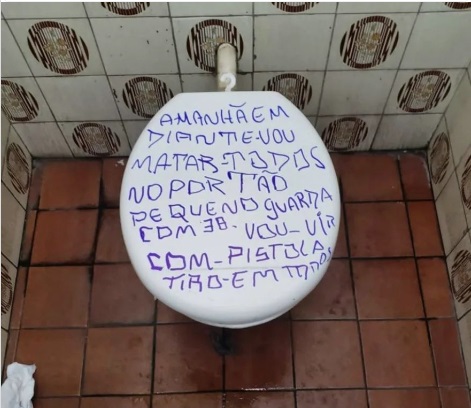 AMANHÃ EM
DIANTE-VOU
MATAR TODOS
NO PORTÃO
PEQUENO GUARDA
COM 38. VOU-VÍR
COM-PISTOLA
TIRO-EM TODOS